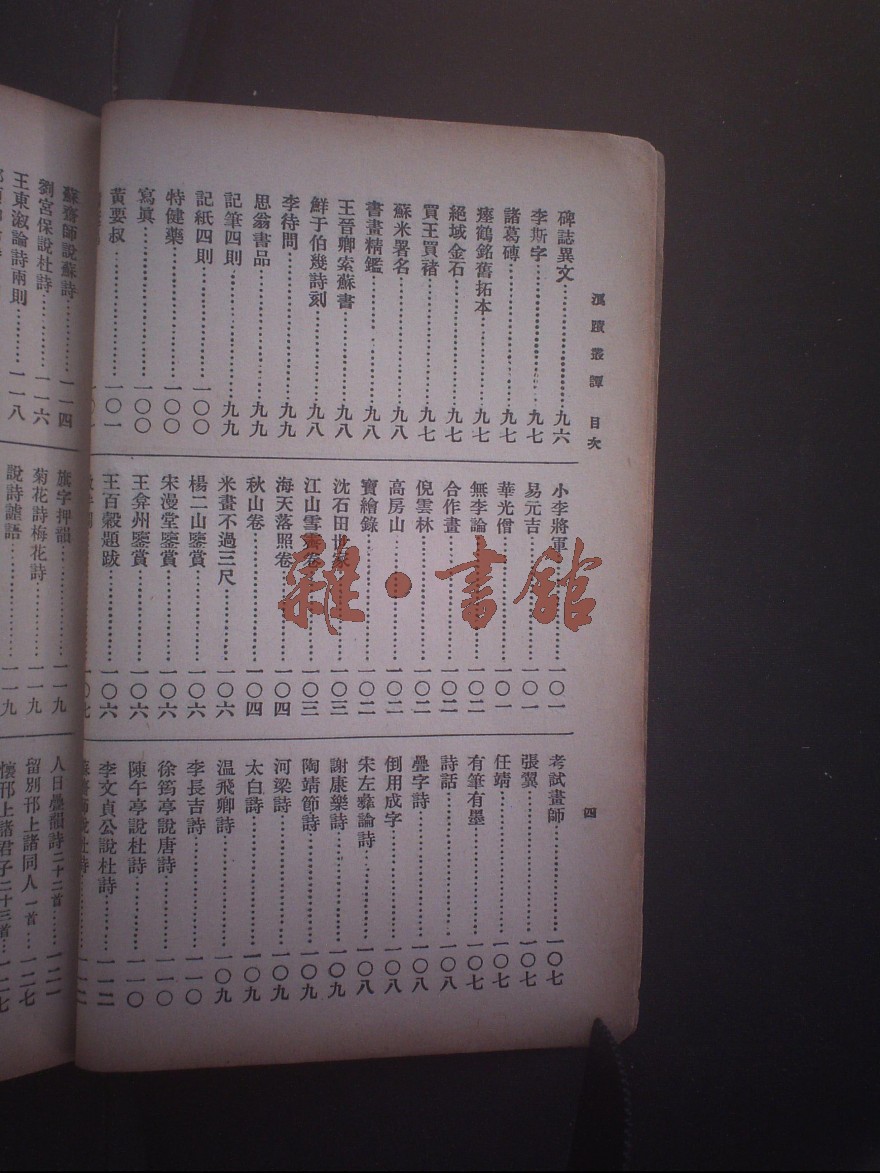 叢譚 目次
碑誌異文……九六
李斯字……九七
諸葛磚……九七
瘞鶴銘舊拓本……九七
絕域金石……九七
買王買褚……九七
蘇米署名……九八
書畫精鑑……九八
王晉卿索蘇書……九八
鮮于伯幾詩刻……九八
李待問……九九
思翁書品……九九
記筆四則……九九
記紙四則……一〇〇
特健藥……一〇〇
寫眞……一〇〇
黃要叔……一〇一
小李將軍……一〇一
易元吉……一〇一
華光僧……一〇一
無李論……一〇二
合作畫……一〇二
倪雲林……一〇二
高房山……一〇二
寶繪錄……一〇二
沈石田世家……一〇三
江山雪霽卷……一〇三
海天落照卷……一〇四
秋山卷……一〇四
米畫不過三尺……一〇六
楊二山鑒賞……一〇六
宋漫堂鑒賞……一〇六
王弇州鑒賞……一〇六
王百穀題跋……一〇六
一〇七
考試畫師……一〇七
張翼……一〇七
任靖……一〇七
有筆有墨……一〇七
詩話……一〇八
疊字詩……一〇八
倒用成字……一〇八
宋左彝論詩……一〇八
謝康樂詩……一〇九
陶靖節詩……一〇九
河梁詩……一〇九
太白詩……一〇九
溫飛卿詩……一〇九
李長吉詩……一一〇
徐筠亭說唐詩……一一〇
陳午亭說杜詩……一一〇
李文貞公說杜詩……一一二
蘇齋師說杜詩……一一二
四
蘇齋師說蘇詩……一一四
劉宮保說杜詩……一一六
王東溆論詩兩則……一一八
旗字押韻……一一九
菊花詩梅花詩……一一九
說詩謔語……一一九
人日疊韻詩二十二首……一二一
留別邗上諸同人一首……一二七
懷邗上諸君子二十三首……一二七
雜·書館